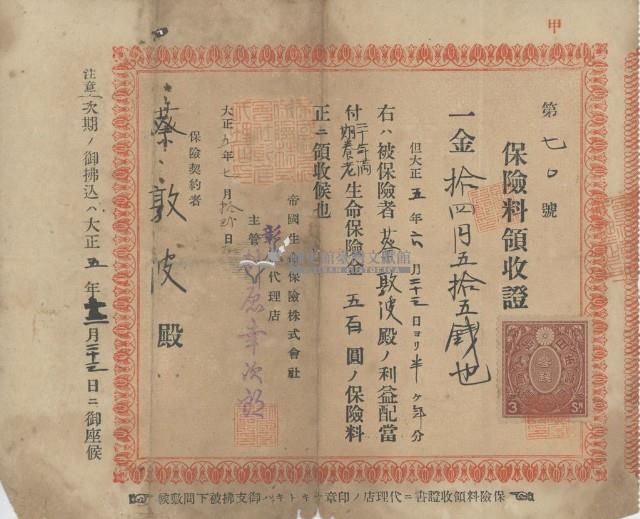 甲
第七〇號
保險料領收證
一金拾四円五拾五錢也
但大正五年六月二十三日ヨリ半ヶ年分
右ハ被保險者蔡敦波殿ノ利益配當
付三十年滿期養老生命保險金五百圓ノ保險料
正ニ領收候也
大正五年七月拾 日
帝國生命保險株式會社
彰化代理店
主管 原幸次郎
保險契約者
蔡敦波殿
注意 次期ノ御拂込ハ大正五年十二月二十三日ニ御座候
保險料領收證書ニ代理店ノ印章ナキトキハ御支拂被下間敷候
3 Sn